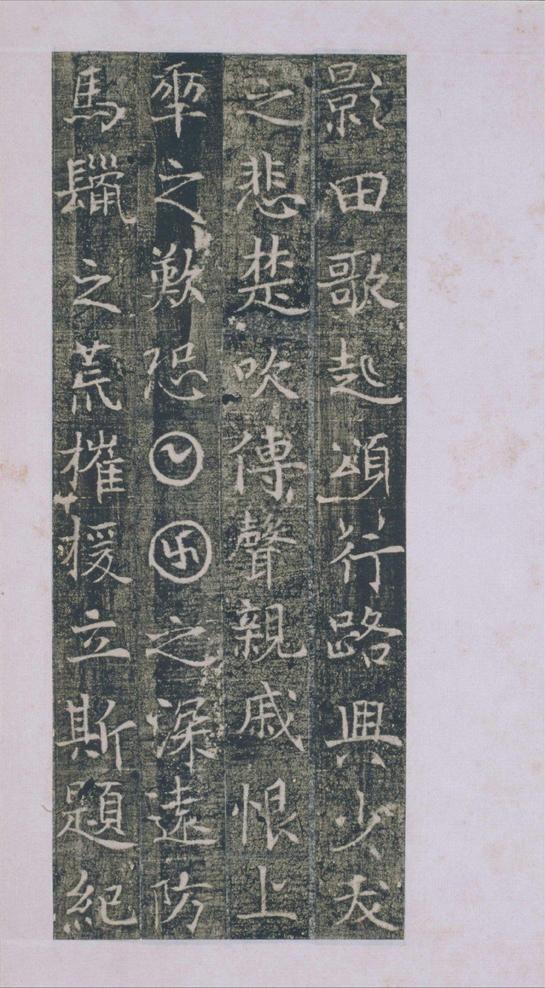 影田歌起頌行路興少犮
之悲楚吹傳聲親戚恨上
之歎恐𡆠卍之深遠防
馬鬣之荒摧援立斯題紀